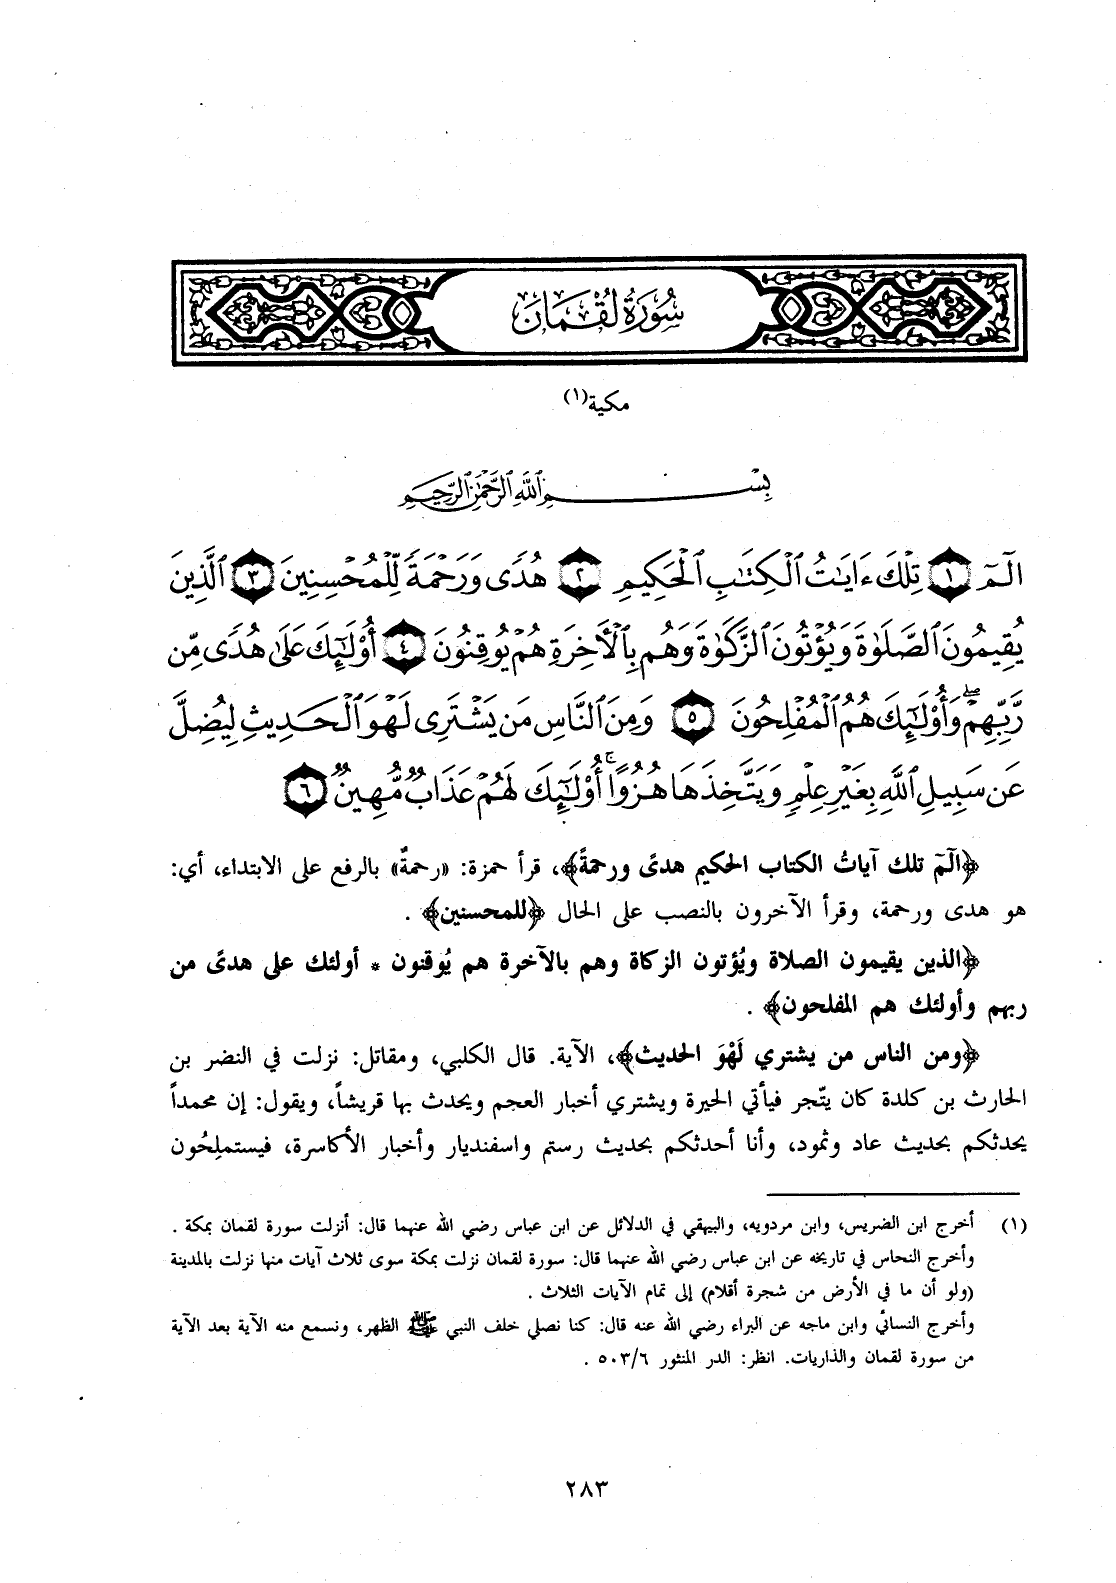 سُورَةُ لُقْمَان
مكية(١)
بِسْمِ ٱللَّهِ ٱلرَّحْمَٰنِ ٱلرَّحِيمِ
الٓمٓ ١ تِلْكَ ءَايَٰتُ ٱلْكِتَٰبِ ٱلْحَكِيمِ ٢ هُدًى وَرَحْمَةً لِّلْمُحْسِنِينَ ٣ ٱلَّذِينَ
يُقِيمُونَ ٱلصَّلَوٰةَ وَيُؤْتُونَ ٱلزَّكَوٰةَ وَهُم بِٱلْأَخِرَةِ هُمْ يُوقِنُونَ ٤ أُوْلَٰٓئِكَ عَلَىٰ هُدًى مِّن
رَّبِّهِمْ ۖ وَأُوْلَٰٓئِكَ هُمُ ٱلْمُفْلِحُونَ ٥ وَمِنَ ٱلنَّاسِ مَن يَشْتَرِى لَهْوَ ٱلْحَدِيثِ لِيُضِلَّ
عَن سَبِيلِ ٱللَّهِ بِغَيْرِ عِلْمٍ وَيَتَّخِذَهَا هُزُوًا ۚ أُوْلَٰٓئِكَ لَهُمْ عَذَابٌ مُّهِينٌ ٦
﴿الٓمٓ تلك آياتُ الكتاب الحكيم هدىً ورحمةً﴾، قرأ حمزة: «رحمةٌ» بالرفع على الابتداء، أي:
هو هدى ورحمة، وقرأ الآخرون بالنصب على الحال ﴿للمحسنين﴾ .
﴿الذين يقيمون الصلاة ويُؤتون الزكاة وهم بالآخرة هم يُوقنون * أولئك على هدىً من
ربهم وأولئك هم المفلحون﴾ .
﴿ومن الناس من يشتري لَهْوَ الحديث﴾، الآية. قال الكلبي، ومقاتل: نزلت في النضر بن
الحارث بن كلدة كان يتّجر فيأتي الحيرة ويشتري أخبار العجم ويحدث بها قريشاً، ويقول: إن محمداً
يحدثكم بحديث عاد وثمود، وأنا أحدثكم بحديث رستم واسفنديار وأخبار الأكاسرة، فيستملِحُون
(١) أخرج ابن الضريس، وابن مردويه، والبيهقي في الدلائل عن ابن عباس رضي الله عنهما قال: أنزلت سورة لقمان بمكة .
وأخرج النحاس في تاريخه عن ابن عباس رضي الله عنهما قال: سورة لقمان نزلت بمكة سوى ثلاث آيات منها نزلت بالمدينة
(ولو أن ما في الأرض من شجرة أقلام) إلى تمام الآيات الثلاث .
وأخرج النسائي وابن ماجه عن البراء رضي الله عنه قال: كنا نصلي خلف النبي ﷺ الظهر، ونسمع منه الآية بعد الآية
من سورة لقمان والذاريات. انظر: الدر المنثور ٥٠٣/٦ .
٢٨٣